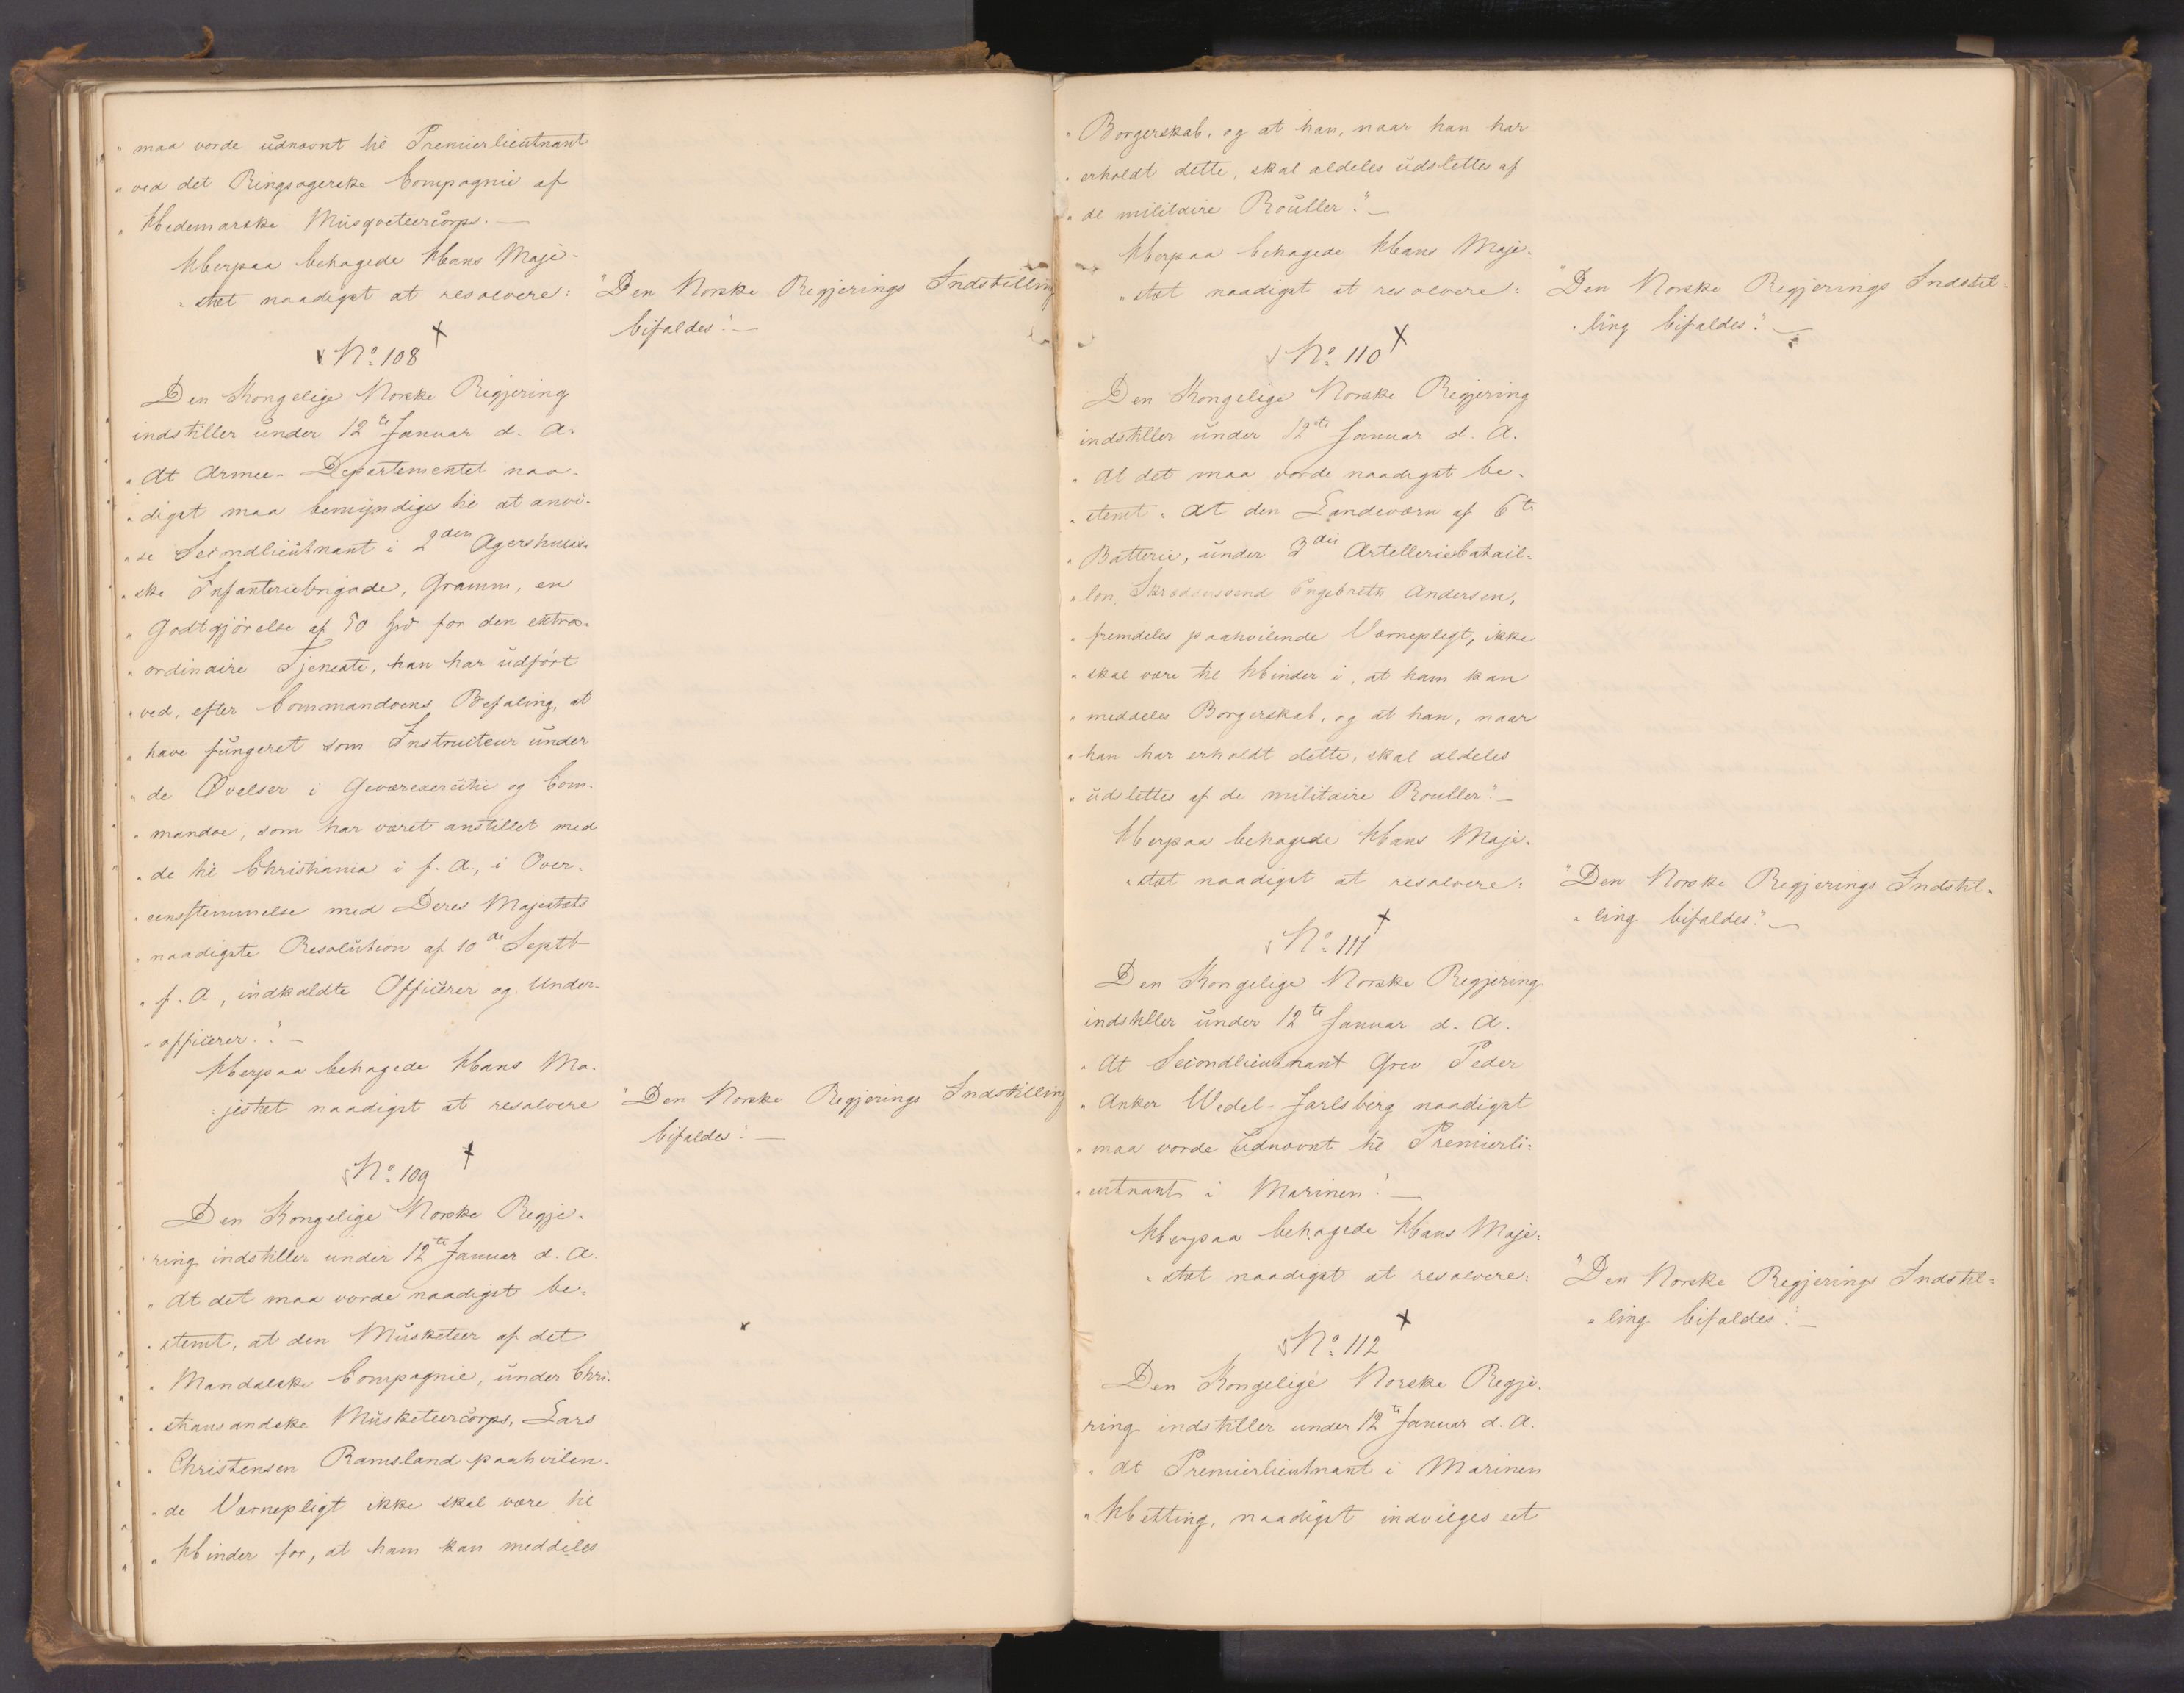 „maa vorde udnævnt til Premierlieutnant
„ved det Ringsagerske Compagnie af
„Hedemarske Musqveteercorps.—
Herpaa behagede Hans Maje-
„stæt naadigst at resolvere:
„Den Norske Regjerings Indstilling
bifaldes“.—
No. 108
Den Kongelige Norske Regjering
indstiller under 12te Januar d. A.
„At Armee-Departementet naa-
„digst maa bemyndiges til at anvi-
„se Secondlieutnant i 2den Agershuus-
„ske Infanteriebrigade, Gramm, en
„Godtgjörelse af 50 for den extra-
„ordinaire Tjeneste, han har udført
„ved, efter Commandoens Befaling, at
„have fungeret som Instructeur under
„de Øvelser i Geværexercitie og Com-
„mandoe, som har været anstillet med
„de til Christiania i f. A., i Over-
„eensstemmelse med Deres Majestæts
„naadigste Resolution af 10de Septb
„f. A., indkaldte Officerer og Under-
„officerer.“—
Herpaa behagede Hans Ma-
„jestæt naadigst at resolvere
„Den Norske Regjerings Indstilling
bifaldes“.—
No. 109
Den Kongelige Norske Regje-
ring indstiller under 12te Januar d. A.
„At det maa vorde naadigst be-
„stemt, at den Musketeer af det
„Mandalske Compagnie, under Chri-
„stiansandske Musketeercorps, Lars
„Christensen Ramsland paahvilen-
„de Værnepligt ikke skal være til
„Hinder for, at ham kan meddeles
„Borgerskab, og at han, naar han har
„erholdt dette, skal aldeles udslettes af
„de militaire Rouller.“—
Herpaa behagede Hans Maje-
„stæt naadigst at resolvere:
„Den Norske Regjerings Indstil-
„ling bifaldes.“—
No. 110
Den Kongelige Norske Regjering
indstiller under 12te Januar d. A.
„At det maa vorde naadigst be-
„stemt, at den Landeværn af 6te
„Batterie, under 3die Artelleriebatail-
„lon, Skræddersvend Engebreth Andersen,
„fremdeles paahvilende Værnepligt, ikke
„skal være til Hinder i, at ham kan
„meddeles Borgerskab, og at han, naar
„han har erholdt dette, skal aldeles
„udslettes af de militaire Rouller“.—
Herpaa behagede Hans Maje-
„stæt naadigst at resolvere:
„Den Norske Regjerings Indstil-
„ling bifaldes.“—
No. 111
Den Kongelige Norske Regjering
indstiller under 12te Januar d. A.
„At Secondlieutenant Grev Peder
„Anker Wedel-Jarlsberg naadigst
„maa vorde udnævnt til Premierli-
„eutnant i Marinen“.—
Herpaa behagede Hans Maje-
„stæt naadigst at resolvere:
„Den Norske Regjerings Indstil-
„ling bifaldes“.—
No. 112
Den Kongelige Norske Regje-
ring indstiller under 12te Januar d. A.
„At Premierlieutnant i Marinen
„Hetting, naadigst indvilges eet